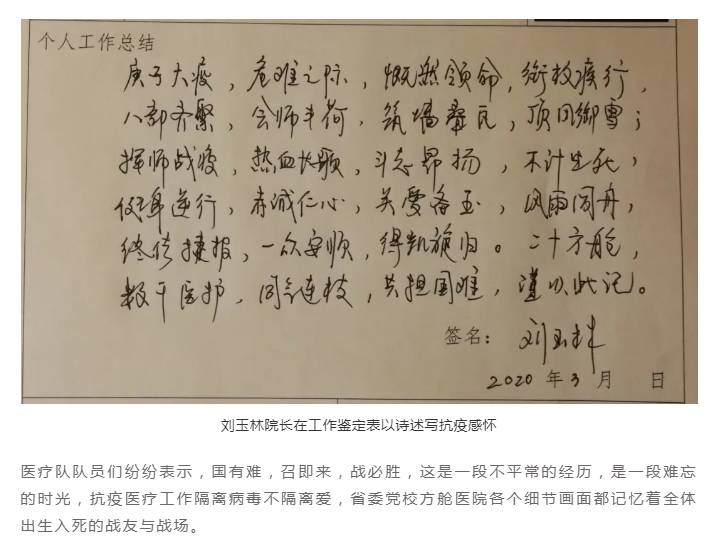 个人工作总结
庚子大疫，危难之际，慨然领命，衔枚疾行，
八部齐聚，会师丰荷，筑墙靠瓦，顶风御雪；
挥师战疫，热血长歌，斗志昂扬，不计生死，
侠身逆行，赤诚仁心，关爱备至，风雨同舟，
终传捷报，一众安顺，得凯旋归。二十方舱，
数千医护，同气连枝，共担国难，谨以此记。
签名：刘玉林
2020 年 3 月 日
刘玉林院长在工作鉴定表以诗述写抗疫感怀
医疗队队员们纷纷表示，国有难，召即来，战必胜，这是一段不平常的经历，是一段难忘
的时光，抗疫医疗工作隔离病毒不隔离爱，省委党校方舱医院各个细节画面都记忆着全体
出生入死的战友与战场。